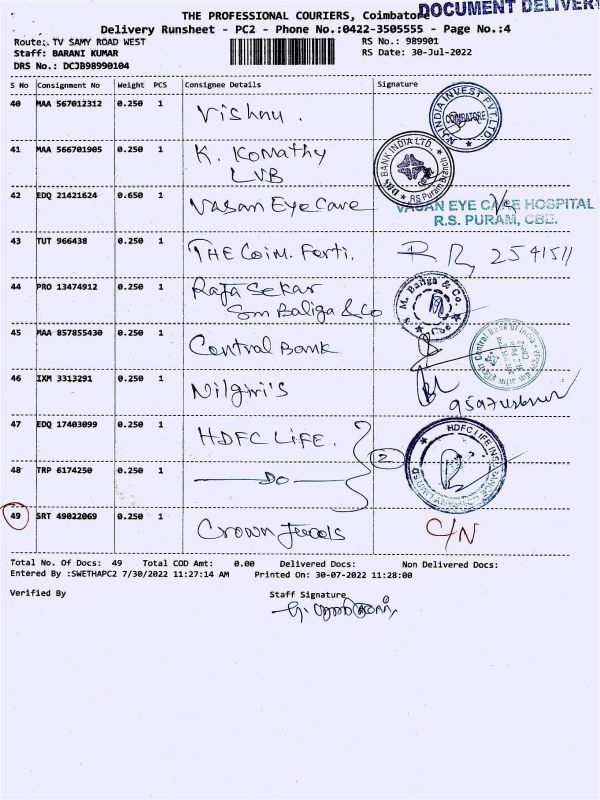 DOCUMENT DELIVERY
THE PROFESSIONAL COURIERS, Coimbatore
Delivery Runsheet - PC2 - Phone No.:0422-3505555 - Page No.:4
Route:. TV SAMY ROAD WEST
RS No.: 989901
Staff: BARANI KUMAR
RS Date: 30-Jul-2022
DRS No.: DCJB98990104
S No Consignment No Weight PCS Consignee Details Signature
40 MAA 567012312 0.250 1 Vishnu .
INDIA INVEST PVT. LTD. COIMBATORE
41 MAA 566701905 0.250 1 K. Komathy
LVB
BANK INDIA LTD., RS Puram Branch
42 EDQ 21421624 0.650 1 Vasan Eye Care
VASAN EYE CARE HOSPITAL
R.S. PURAM, CBE.
43 TUT 966438 0.250 1 THE Coim. Ferti.
44 PRO 13474912 0.250 1 Raja Sekar
Sm Baliga & Co
S. M. Baliga & Co. CBE
45 MAA 857855430 0.250 1 Central Bank
Central Bank of India
46 IXM 3313291 0.250 1 Nilgiri's
47 EDQ 17403099 0.250 1 HDFC LIFE .
2
HDFC LIFE
48 TRP 6174250 0.250 1 — DO —
49 SRT 49022069 0.250 1 Crown Jewels
C/N
Total No. Of Docs: 49 Total COD Amt: 0.00 Delivered Docs: Non Delivered Docs:
Entered By :SWETHAPC2 7/30/2022 11:27:14 AM Printed On: 30-07-2022 11:28:00
Verified By Staff Signature